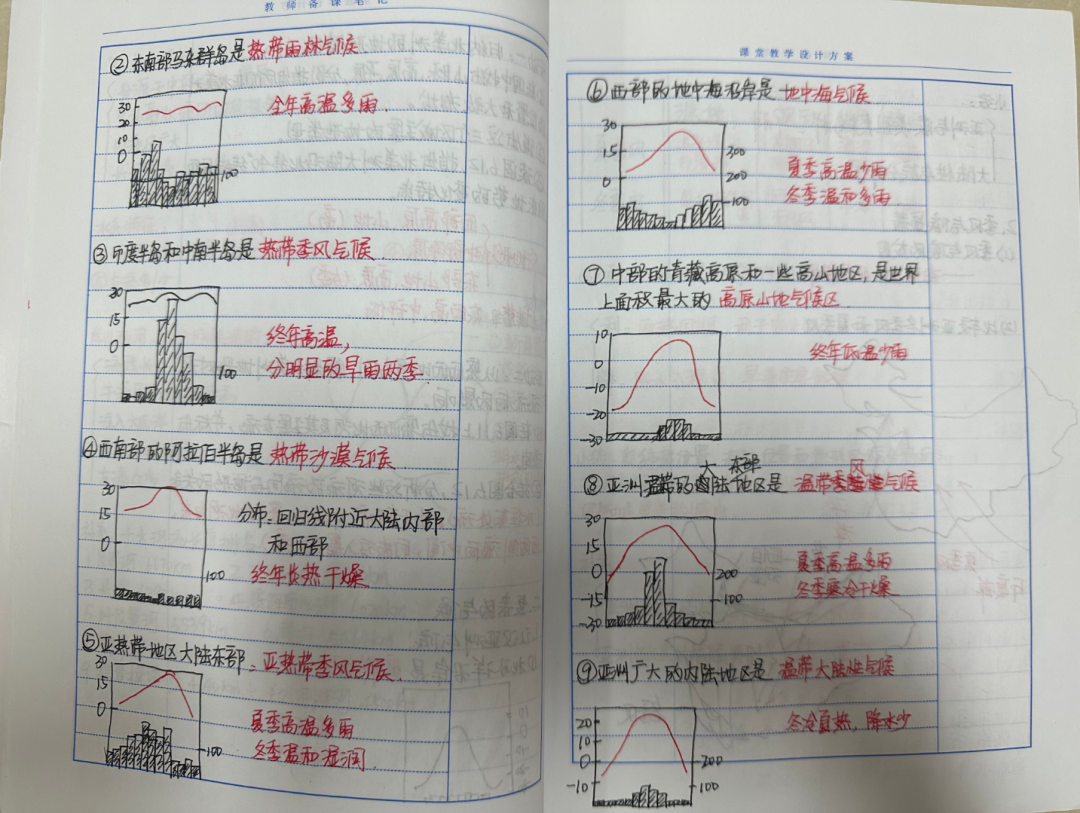 教师备课笔记
②东南部马来群岛是热带雨林气候
30
20
10
0
100
全年高温多雨.
③印度半岛和中南半岛是热带季风气候.
30
15
0
100
终年高温,
分明显的旱雨两季.
④西南部的阿拉伯半岛是热带沙漠气候
30
15
0
100
分布:回归线附近大陆内部
和西部
终年炎热干燥
⑤亚热带地区大陆东部:亚热带季风气候.
30
15
0
100
夏季高温多雨
冬季温和湿润.
课堂教学设计方案
⑥西部的地中海沿岸是地中海气候
30
15
0
300
200
100
夏季高温少雨
冬季温和多雨
⑦中部的青藏高原和一些高山地区,是世界
上面积最大的高原山地气候区
10
0
-10
-20
-30
终年低温少雨
大 东部 风
⑧亚洲温带的陆地区是温带季气候
30
15
0
-15
-30
200
100
夏季高温多雨
冬季寒冷干燥
⑨亚洲广大的内陆地区是温带大陆性气候
20
10
0
-10
200
100
冬冷夏热,降水少